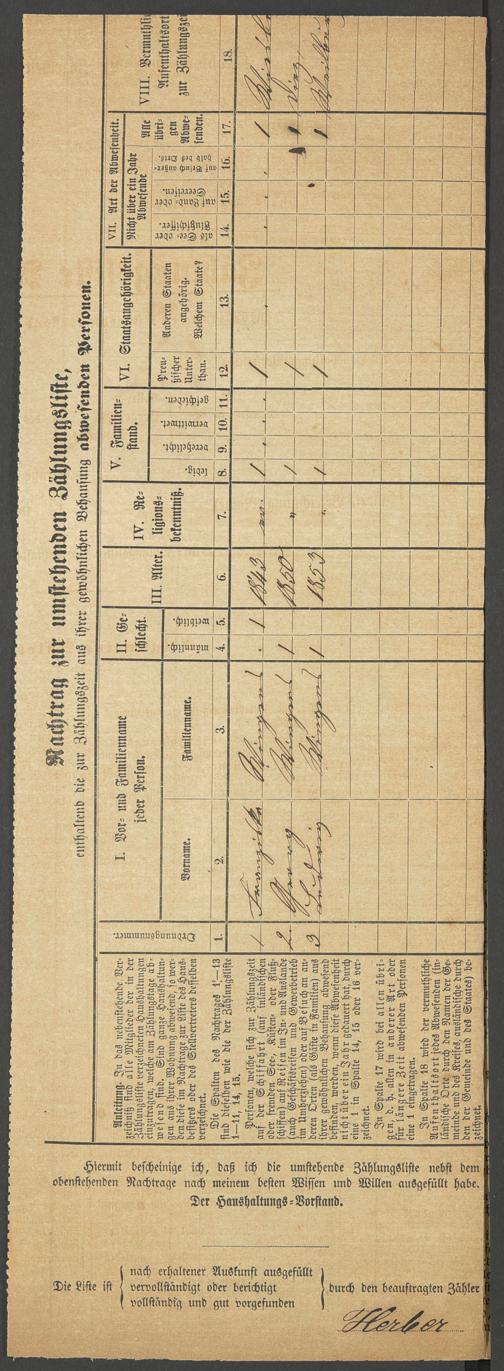 Nachtrag zur umstehenden Zählungsliste,
enthaltend die zur Zählungszeit aus ihrer gewöhnlichen Behausung abwesenden Personen.
Anleitung. In das nebenstehende Ver-
zeichniß sind alle Mitglieder der in der
Zählungsliste verzeichneten Haushaltungen
einzutragen, welche am Zählungstage ab-
wesend sind. Sind ganze Haushaltun-
gen aus ihrer Wohnung abwesend, so wer-
den diese im Nachtrage zur Liste des Haus-
besitzers oder des Stellvertreters desselben
verzeichnet.
Die Spalten des Nachtrages 1—13
sind dieselben wie die der Zählungsliste
1—11, 14, 15.
Personen, welche sich zur Zählungszeit
auf der Schifffahrt (auf inländischen
oder fremden See-, Küsten- oder Fluß-
schiffen) auf Reisen im In- und Auslande
(auch Geschäftsreisen und Gewerbebetrieb
im Umherziehen) oder auf Besuch an an-
deren Orten (als Gäste in Familien) aus
ihrer gewöhnlichen Behausung abwesend
befinden, werden, wenn diese Abwesenheit
nicht über ein Jahr gedauert hat, durch
eine 1 in Spalte 14, 15 oder 16 ver-
zeichnet.
In Spalte 17 wird bei allen übri-
gen, d. h. allen in anderer Art oder
für längere Zeit abwesenden Personen
eine 1 eingetragen.
In Spalte 18 wird der vermuthliche
Aufenthaltsort des Abwesenden (in-
ländische Orte durch den Namen der Ge-
meinde und des Kreises, ausländische durch
den der Gemeinde und des Staates) be-
zeichnet.
Ordnungsnummer.
I. Vor- und Familienname
jeder Person.
Vorname.
Familienname.
II. Ge-
schlecht.
männlich.
weiblich.
III. Alter.
IV. Re-
ligions-
bekenntniß.
V. Familien-
stand.
ledig.
verehelicht.
verwittwet.
geschieden.
VI. Staatsangehörigkeit.
Preu-
ßischer
Unter-
than.
Anderen Staaten
angehörig.
Welchem Staate?
VII. Art der Abwesenheit.
Nicht über ein Jahr
Abwesende
als See- oder
Flußschiffer.
auf Land- oder
Seereisen.
auf Besuch außer-
halb des Orts.
Alle
übri-
gen
Abwe-
senden.
VIII. Vermuthli
Aufenthaltsort
zur Zählungszei
1. 2. 3. 4. 5. 6. 7. 8. 9. 10. 11. 12. 13. 14. 15. 16. 17. 18.
1 Franziska 1 1843 ev. 1 1 1
2 Georg 1 1850 " 1 1 1
3 Ludwig 1 1853 " 1 1 1
Hiermit bescheinige ich, daß ich die umstehende Zählungsliste nebst dem
obenstehenden Nachtrage nach meinem besten Wissen und Willen ausgefüllt habe.
Der Haushaltungs-Vorstand.
Die Liste ist
nach erhaltener Auskunft ausgefüllt
vervollständigt oder berichtigt
vollständig und gut vorgefunden
durch den beauftragten Zähler
Herber